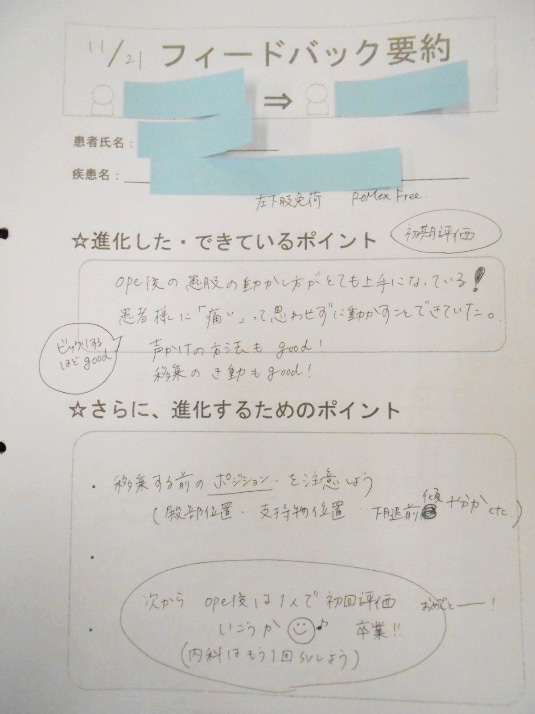 11/21 フィードバック要約
⇒
患者氏名：
疾患名：
左下肢免荷 ROMex Free.
☆進化した・できているポイント
初期評価
ope後の患肢の動かし方がとても上手になっている!
患者様に「痛い」って思わせずに動かすことできていた。
ビックリする
ほどgood
声かけの方法も good!
移乗の き動も good!
☆さらに、進化するためのポイント
・移乗する前の ポジション を注意しよう
(殿部位置・支持物位置 下腿前傾
・
次から ope後は1人で 初回評価
おめでとー!
・ いこうか 卒業!!
(内科はもう1回SVしよう)